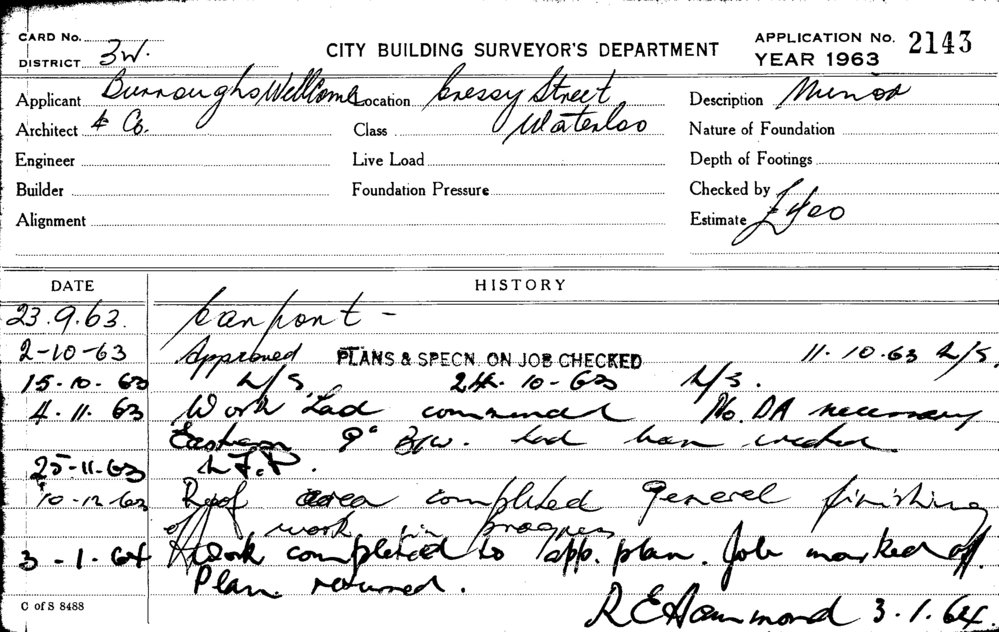 CARD No.
DISTRICT 3W.
CITY BUILDING SURVEYOR'S DEPARTMENT
APPLICATION No. 2143
YEAR 1963
Applicant Burroughs Wellcome Location Cressy Street Description Minor
Architect & Co. Class Waterloo Nature of Foundation
Engineer Live Load Depth of Footings
Builder Foundation Pressure Checked by
Alignment Estimate
DATE HISTORY
23.9.63. Carport -
2-10-63 Approved PLANS & SPECN. ON JOB CHECKED 11.10.63 L/S.
15.10.63 L/S 24.10-63 L/S.
4.11.63 Work had commenced No. DA necessary
Eastern 9" B/W. had been erected.
25-11-63
10-12-63 Roof area completed General finishing
off work in progress
3-1.64 Work completed to app. plan. Job marked off.
Plan returned.
R E Hammond 3.1.64.
C of S 8488